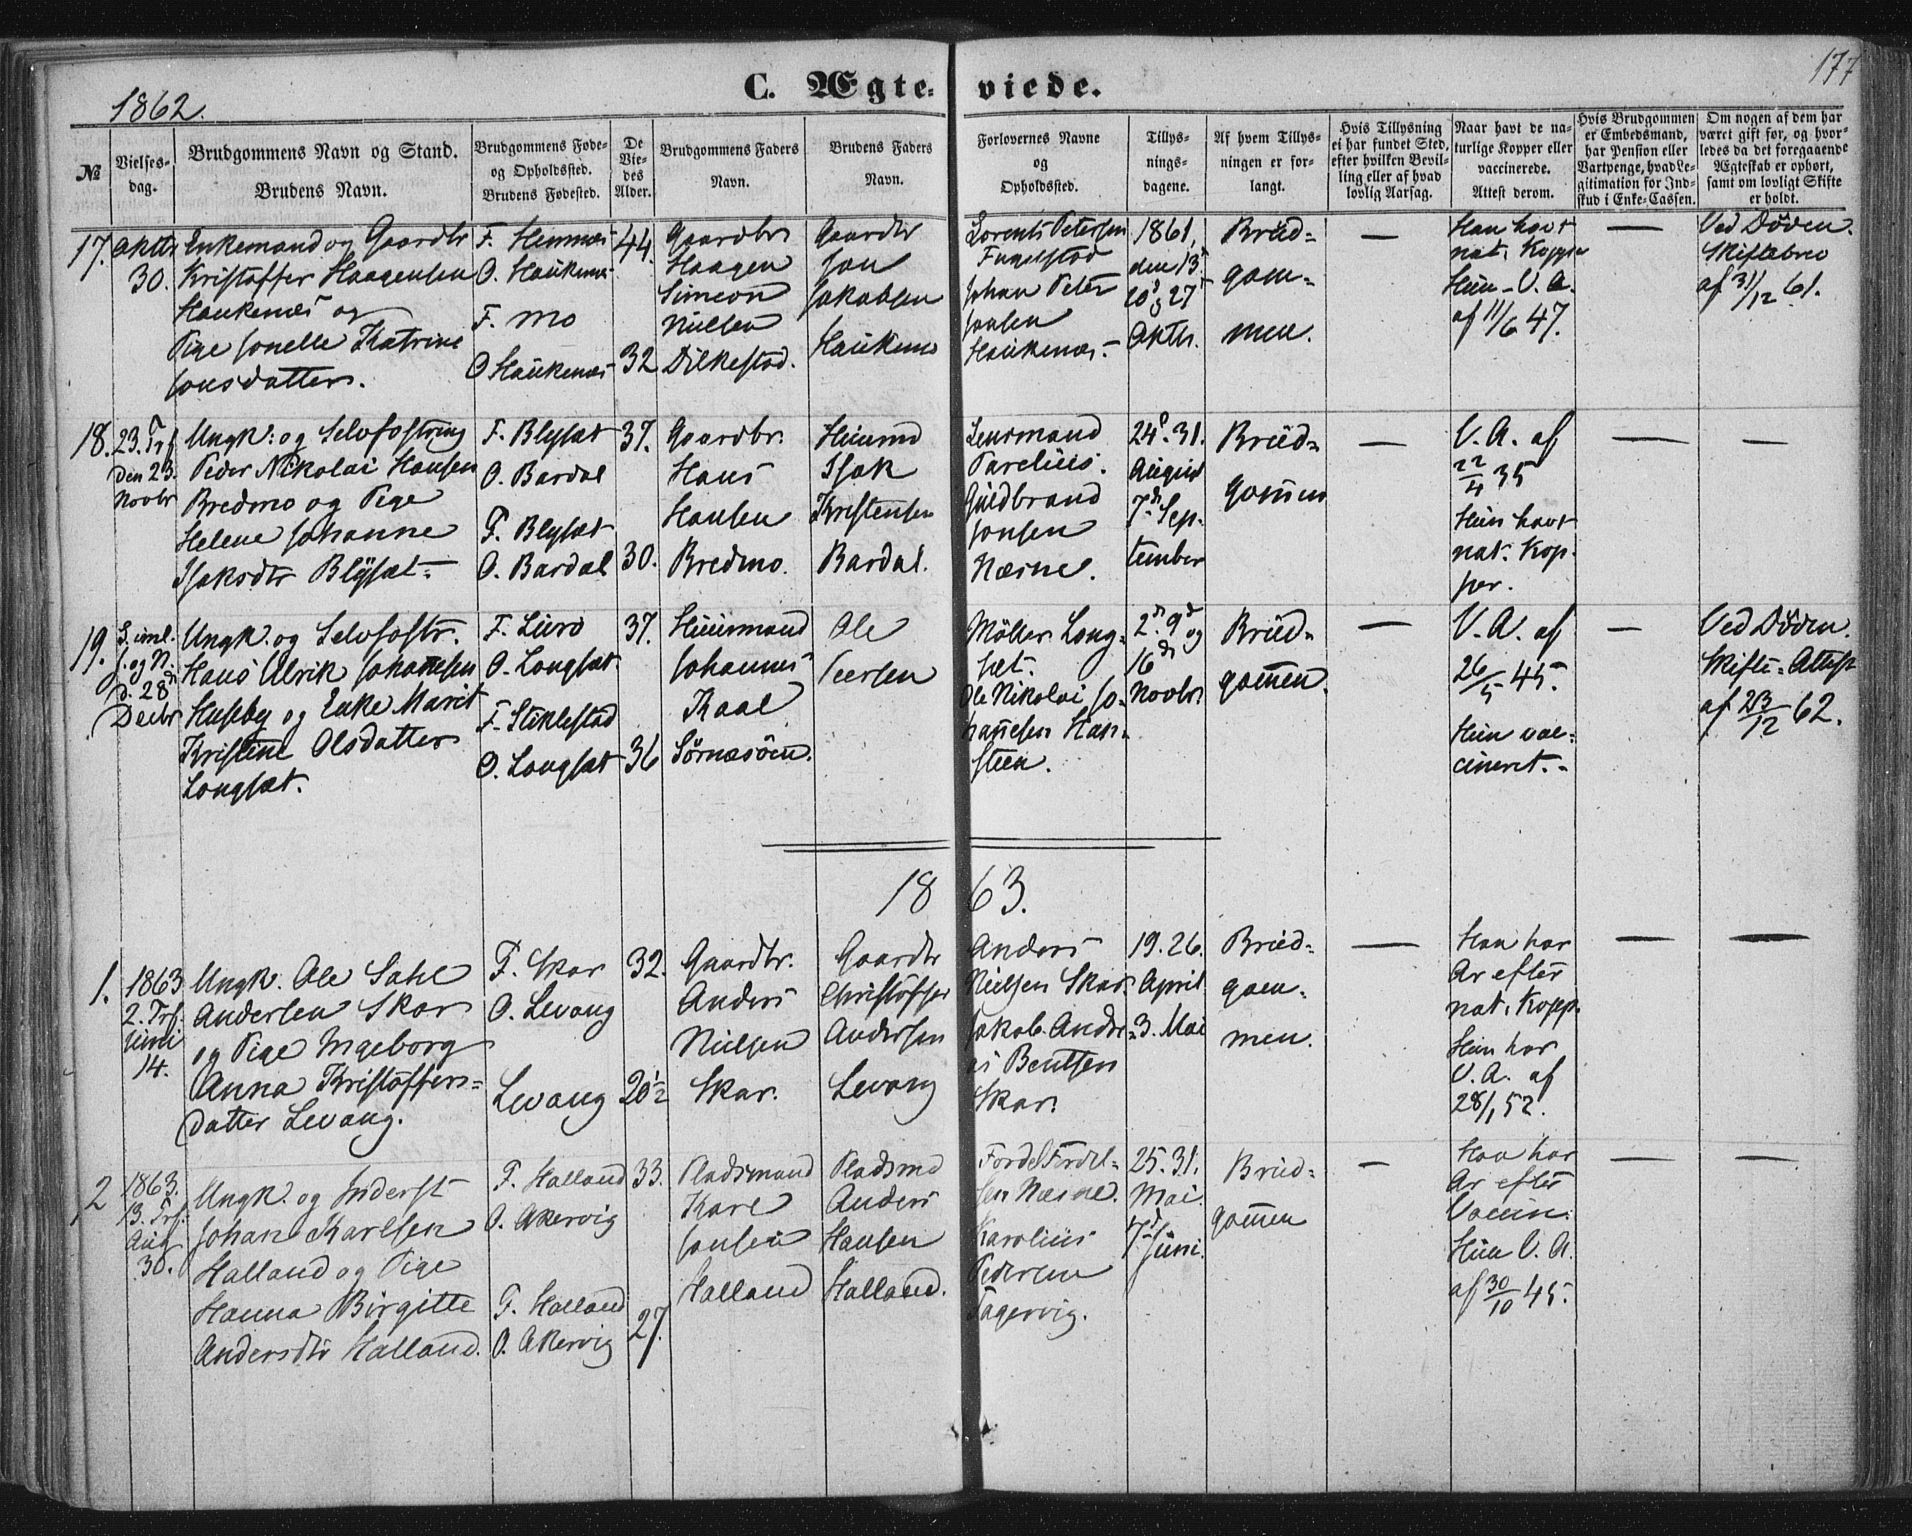 177
1862.
C. Ægteviede.
№
Vielses-
dag.
Brudgommens Navn og Stand.
Brudens Navn.
Brudgommens Føde-
og Opholdssted.
Brudens Fødested.
De
Vie-
des
Alder.
Brudgommens Faders
Navn.
Brudens Faders
Navn.
Forlovernes Navne
og
Opholdssted.
Tillys-
nings-
dagene.
Af hvem Tillys-
ningen er for-
langt.
Hvis Tillysning
ei har fundet Sted,
efter hvilken Bevil-
ling eller af hvad
lovlig Aarsag.
Naar havt de na-
turlige Kopper eller
vaccinerede.
Attest derom.
Hvis Brudgommen
er Embedsmand,
har Pension eller
Vartpenge, hvad Le-
gitimation for Ind-
skud i Enke-Cassen.
Om nogen af dem har
været gift før, og hvor-
ledes da det foregaaende
Ægteskab er ophørt,
samt om lovligt Skifte
er holdt.
17.
Oktbr
30.
Enkemand og Gaardbr
Kristoffer Haagensen
Haukenæs og
Pige Jonelle Katrine
Jonsdatter.
F. Hemnæs
O. Haukenæs
F. Mo
O Haukenæs
44.
32
Gaardbr
Haagen
Simeon
Nielsen
Dilkestad.
Gaardbr
Jon
Jakobsen
Haukenæs
Lorents Petersen
Fugelstad
Johan Peter
Jonsen
Haukenæs.
1861,
den 13d
20d og 27d
Oktbr.
Brud-
gom-
men.
—
Han havt
nat. Kopper
Hun - V. A.
af 11/6 47.
—
Ved Døden.
Skiftebrev
af 31/12 61.
18.
23. Trf
Den 23.
Novbr
Ungk: og Selvfostring
Peder Nikolai Hansen
Bredmo og Pige
Helene Johanne
Isaksdtr Blysæt-
F. Blysæt
O. Bardal
F. Blysæt
O. Bardal
37.
30.
Gaardbr.
Hans
Hansen
Bredmo.
Huusmd
Isak
Kristensen
Bardal.
Lensmand
Parelius.
Guldbrand
Jonsen
Næsne.
24d. 31.
August
7de Sep-
tember
Brud-
gommen
—
V. A. af
22/4 35
Hun havt
nat. Kop-
per.
—
—
19.
S. iml.
J. og N.
d. 28d
Decbr
Ungk. og Selvfostr.
Hans Ulrik Johannesen
Huseby og Enke Marit
Kristine Olsdatter
Langsæt.
F. Lurø
O. Langsæt
F. Stiklestad
O. Langsæt
37.
36
Huusmand
Johannes
Kaal
Sørnæsøen.
Ole
Peersen
Möller Lang-
sæt.
Ole Nikolai Jo-
hannesen Han-
steen.
2d. 9d og
16d
Novbr.
Brud-
gommen.
—
V. A. af
26/5 45.
Hun vac-
cineret.
—
Ved Døden.
Skifte-Attest
af 23/12 62.
1863.
1.
1863
2. Trf.
Juni
14.
Ungk. Ole Sahl
Andersen Skar
og Pige Ingeborg
Anna Kristoffers-
datter Levang.
F. Skar
O. Levang
Levang
32.
20 1/2
Gaardbr.
Anders
Nielsen
Skar.
Gaardbr
Christoffer
Andersen
Levang
Anders
Nielsen Skar.
Jakob Andre-
as Bentsen
Skar.
19. 26.
April
3. Mai
Brud-
gom-
men.
—
Han har
Ar efter
nat. Kopp.
Hun har
V. A. af
28/1 52.
—
—
2
1863.
13. Trf.
Aug
30.
Ungk. og Inderst
Johan Karlsen
Halland og Pige
Hanna Birgitte
Andersdtr Halland.
F. Halland
O. Akervig
F. Halland
O. Akervig
33.
27.
Pladsmand
Karl
Jonsen
Halland
Pladsmd
Anders
Hansen
Halland.
Fordel Fordel-
sen Næsne.
Karolius
Pedersen
Tagervig.
25. 31.
Mai
7d Juni.
Brud-
gommen
—
Han har
Ar efter
Vaccin.
Hun V. A.
af 30/10 45.
—
—